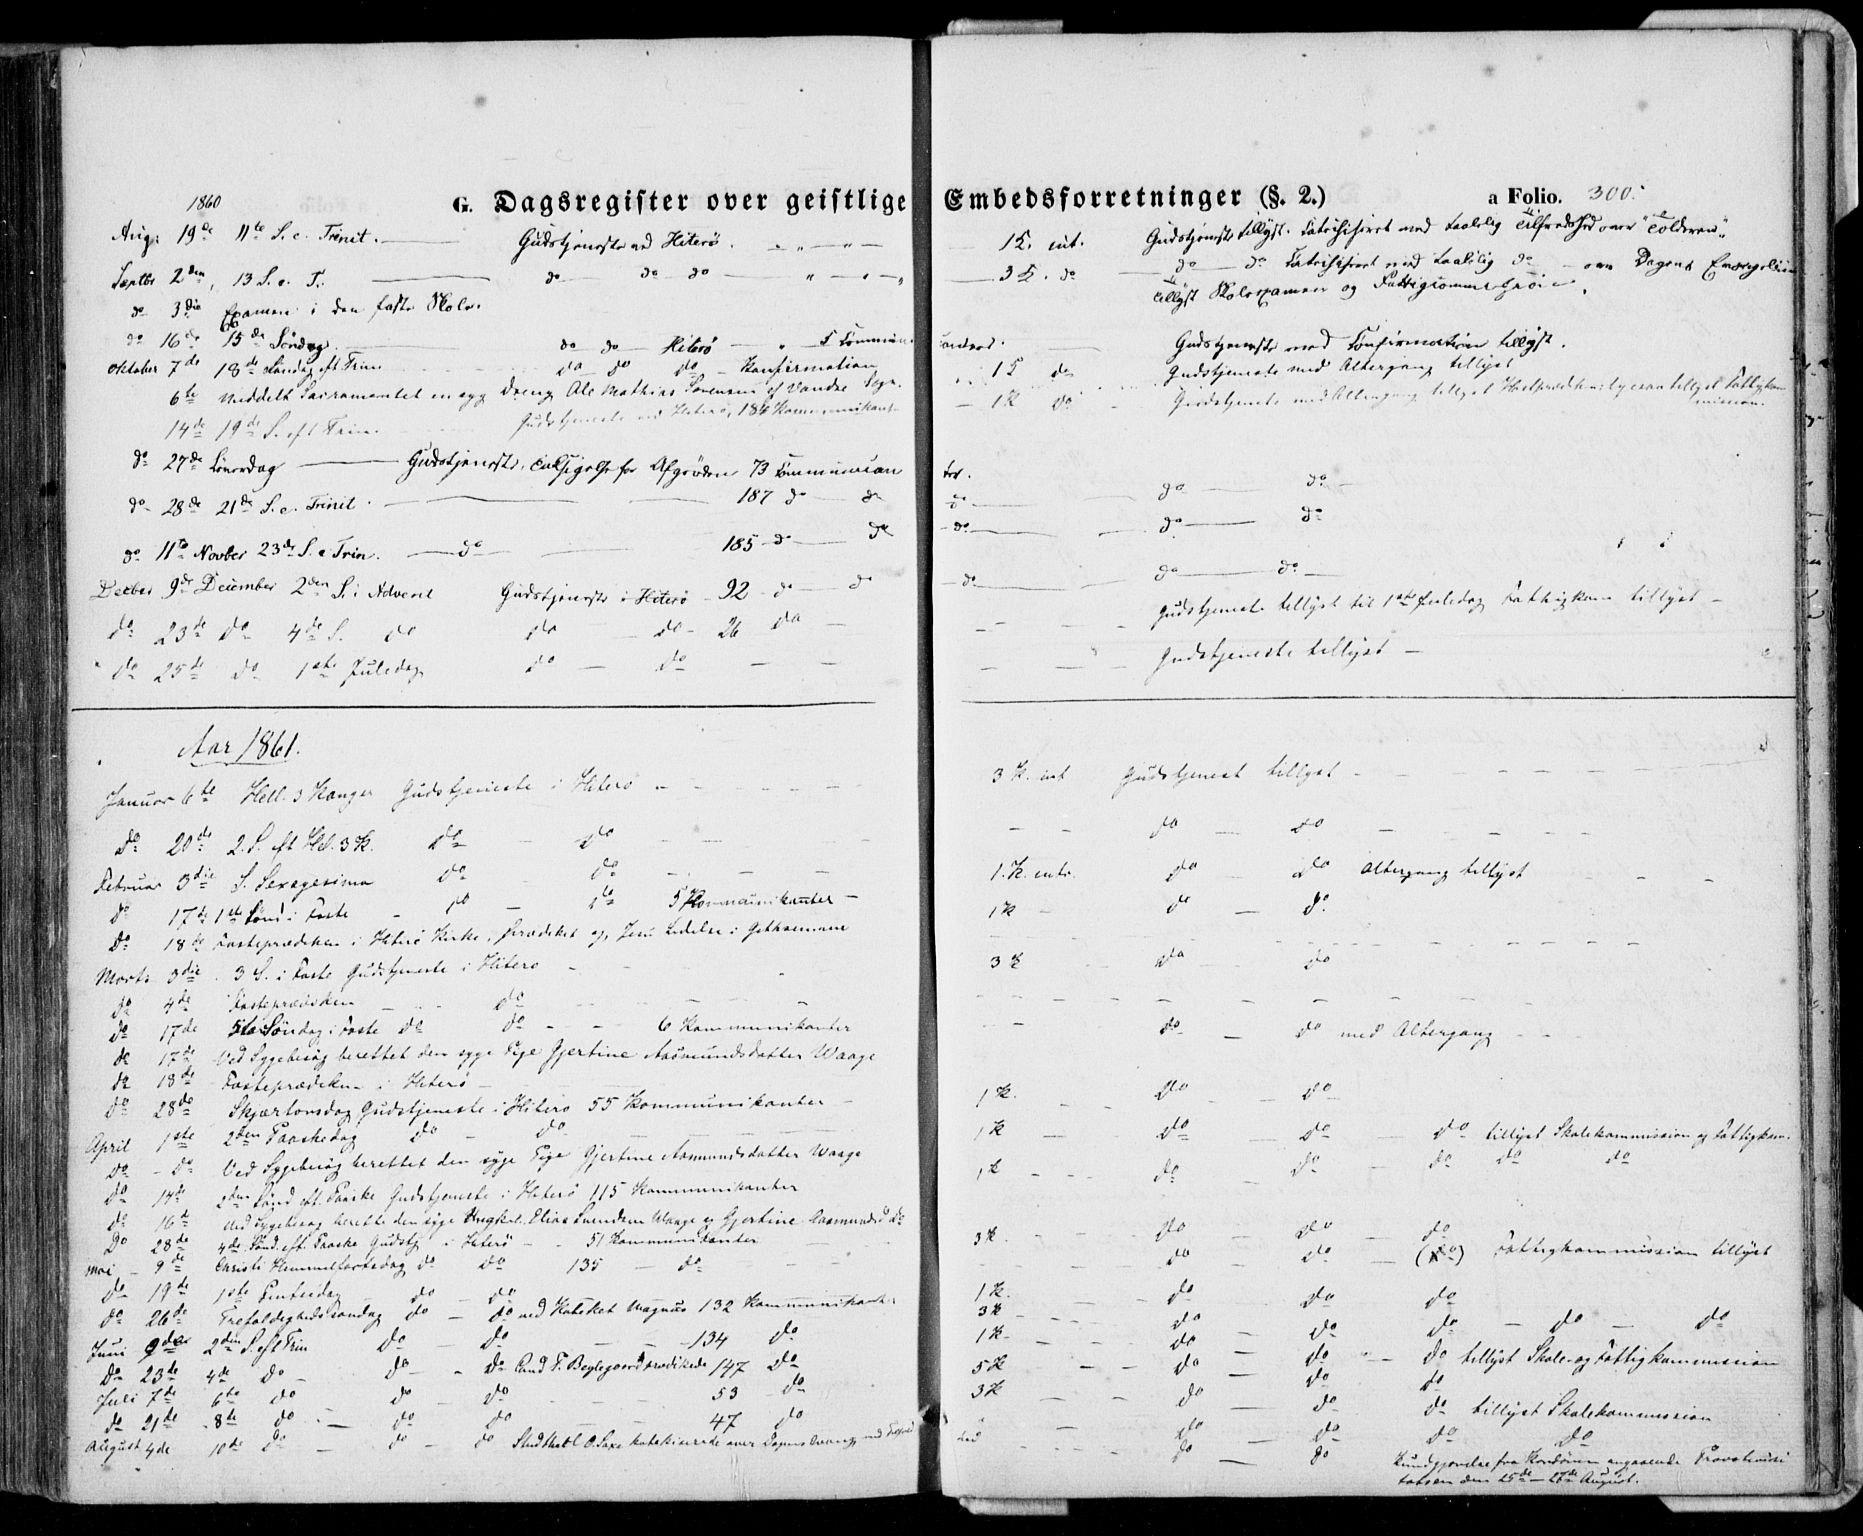 1860 G. Dagsregister over geistlige Embedsforretninger (§. 2.) a Folio. 300.
Aug. 19de 11te S. e. Trinit. Gudstjeneste ved Hiterö. 1 K. int. Gudstjeneste tillyst. Catechiseret med taalelig Tilfredshed over
Septbr 2den, 13 S. e. T. do do do 3 K. do do do Catechiseret med taalelig do om Dagens Evangelium
do 3die Examen i den faste Skole. tillyst Skoleexamen og
do 16de 15de Söndag do do Hiterö 5 Communicanter. Gudstjeneste med Confirmation tillyst.
Oktober 7de 18de Söndag eft Trin do do do Konfirmation 1 K do Gudstjeneste med Altergang tillyst
6te meddelt Sacramentet en syg Dreng Ole Mathias Sörensen af Vandsø Sogn.
14de 19de S. eft Trin. Gudstjeneste ved Hiterö, 184 Kommunikant 1 K do Gudstjeneste med Altergang tillyst tillyst Fattigkommission.
do 27de Löverdag Gudstjeneste, Taksigelse for Afgröden 73 Communicanter. do do
do 28de 21de S. e. Trinit. 187 do do do do do
do 11te Novber 23de S. e Trin. do 185 do do do do do
Decber 9de December 2den S. i Advent Gudstjeneste i Hiterö 92 do do Gudstjeneste tillyst til 1ste Juledag Fattigkom tillyst
do 23de do 4de S. do do do 26 do
do 25de do 1ste Juledag do do Gudstjeneste tillyst
Aar 1861.
Januar 6te Hell. 3 Konger Gudstjeneste i Hiterö 3 K. int Gudstjenest tillyst
do 20de 2. S. eft Hel. 3 K. do do do do
Februar 3die S. Sexagesima do do 1. K. intr. do do Altergang tillyst
do 17de 1ste Sönd i Faste do do 5 Kommunikanter 1 K do do
do 18de Fasteprædiken i Hiterö Kirke, prædiket og Jesu Lidelse i Gethsemane
Marts 3die 3 S. i Faste Gudstjeneste i Hitero 3 K do do
do 4de Fasteprædiken do
do 17de 5te Söndag i Faste do do 6 Kommunikanter do do med Altergang
do 17de Ved Sygebesög berettet den syge Pige Gjertine Aasmundsdatter Waage
do 18de Fasteprædiken i Hiterö
do 28de Skjærtorsdag Gudstjeneste i Hitero 55 Kommunikanter 1 K. do do
April 1ste 2den Paaskedag do do 1 K do do do tillyst Skolekommission og Fattigkom.
do do Ved Sygebesög berettet den syge Pige Gjertine Aasmundsdatter Waage
do 14de 2den Sönd eft. Paaske Gudstjeneste i Hiterö 115 Kommunikanter 1 K do do do do do
do 16de Ved Sygebesög berette den syge Ungkel. Elias Svendsen Waage og Gjertine Aasmundsd do
do 28de 4de Sönd. eft. Paaske Gudstj i Hiterö 51 Kommunikanter 3 K. do do do
Mai 9de Christi Himmelfartsdag do do 135 do do do (do) Fattigkommission tillyst
do 19de 1ste Pintsedag do do 1 K. do do do
do 26de Trefoldighedssøndag do do ved Kateket Magnus 132 Kommunikanter 3 K do do do do do
Juni 9de 2den S. eft Trin do do 134 do 1 K do do do tillyst Skole- og Fattigkommission
do 23de 4de do do do Cand T. prædikede 147 do 5 K do do do
Juli 7de 6te do do do 53 do 3 K do do do tillyst Skolekommission
do 21de 8de do do do 47 do do do do do
August 4de 10de do do do Stud theol O. Saxe katekiserede over Dagens Evang. do do Kundgjörelse fra angaaende Provstevisi
tatsen den 25de - 26de August.